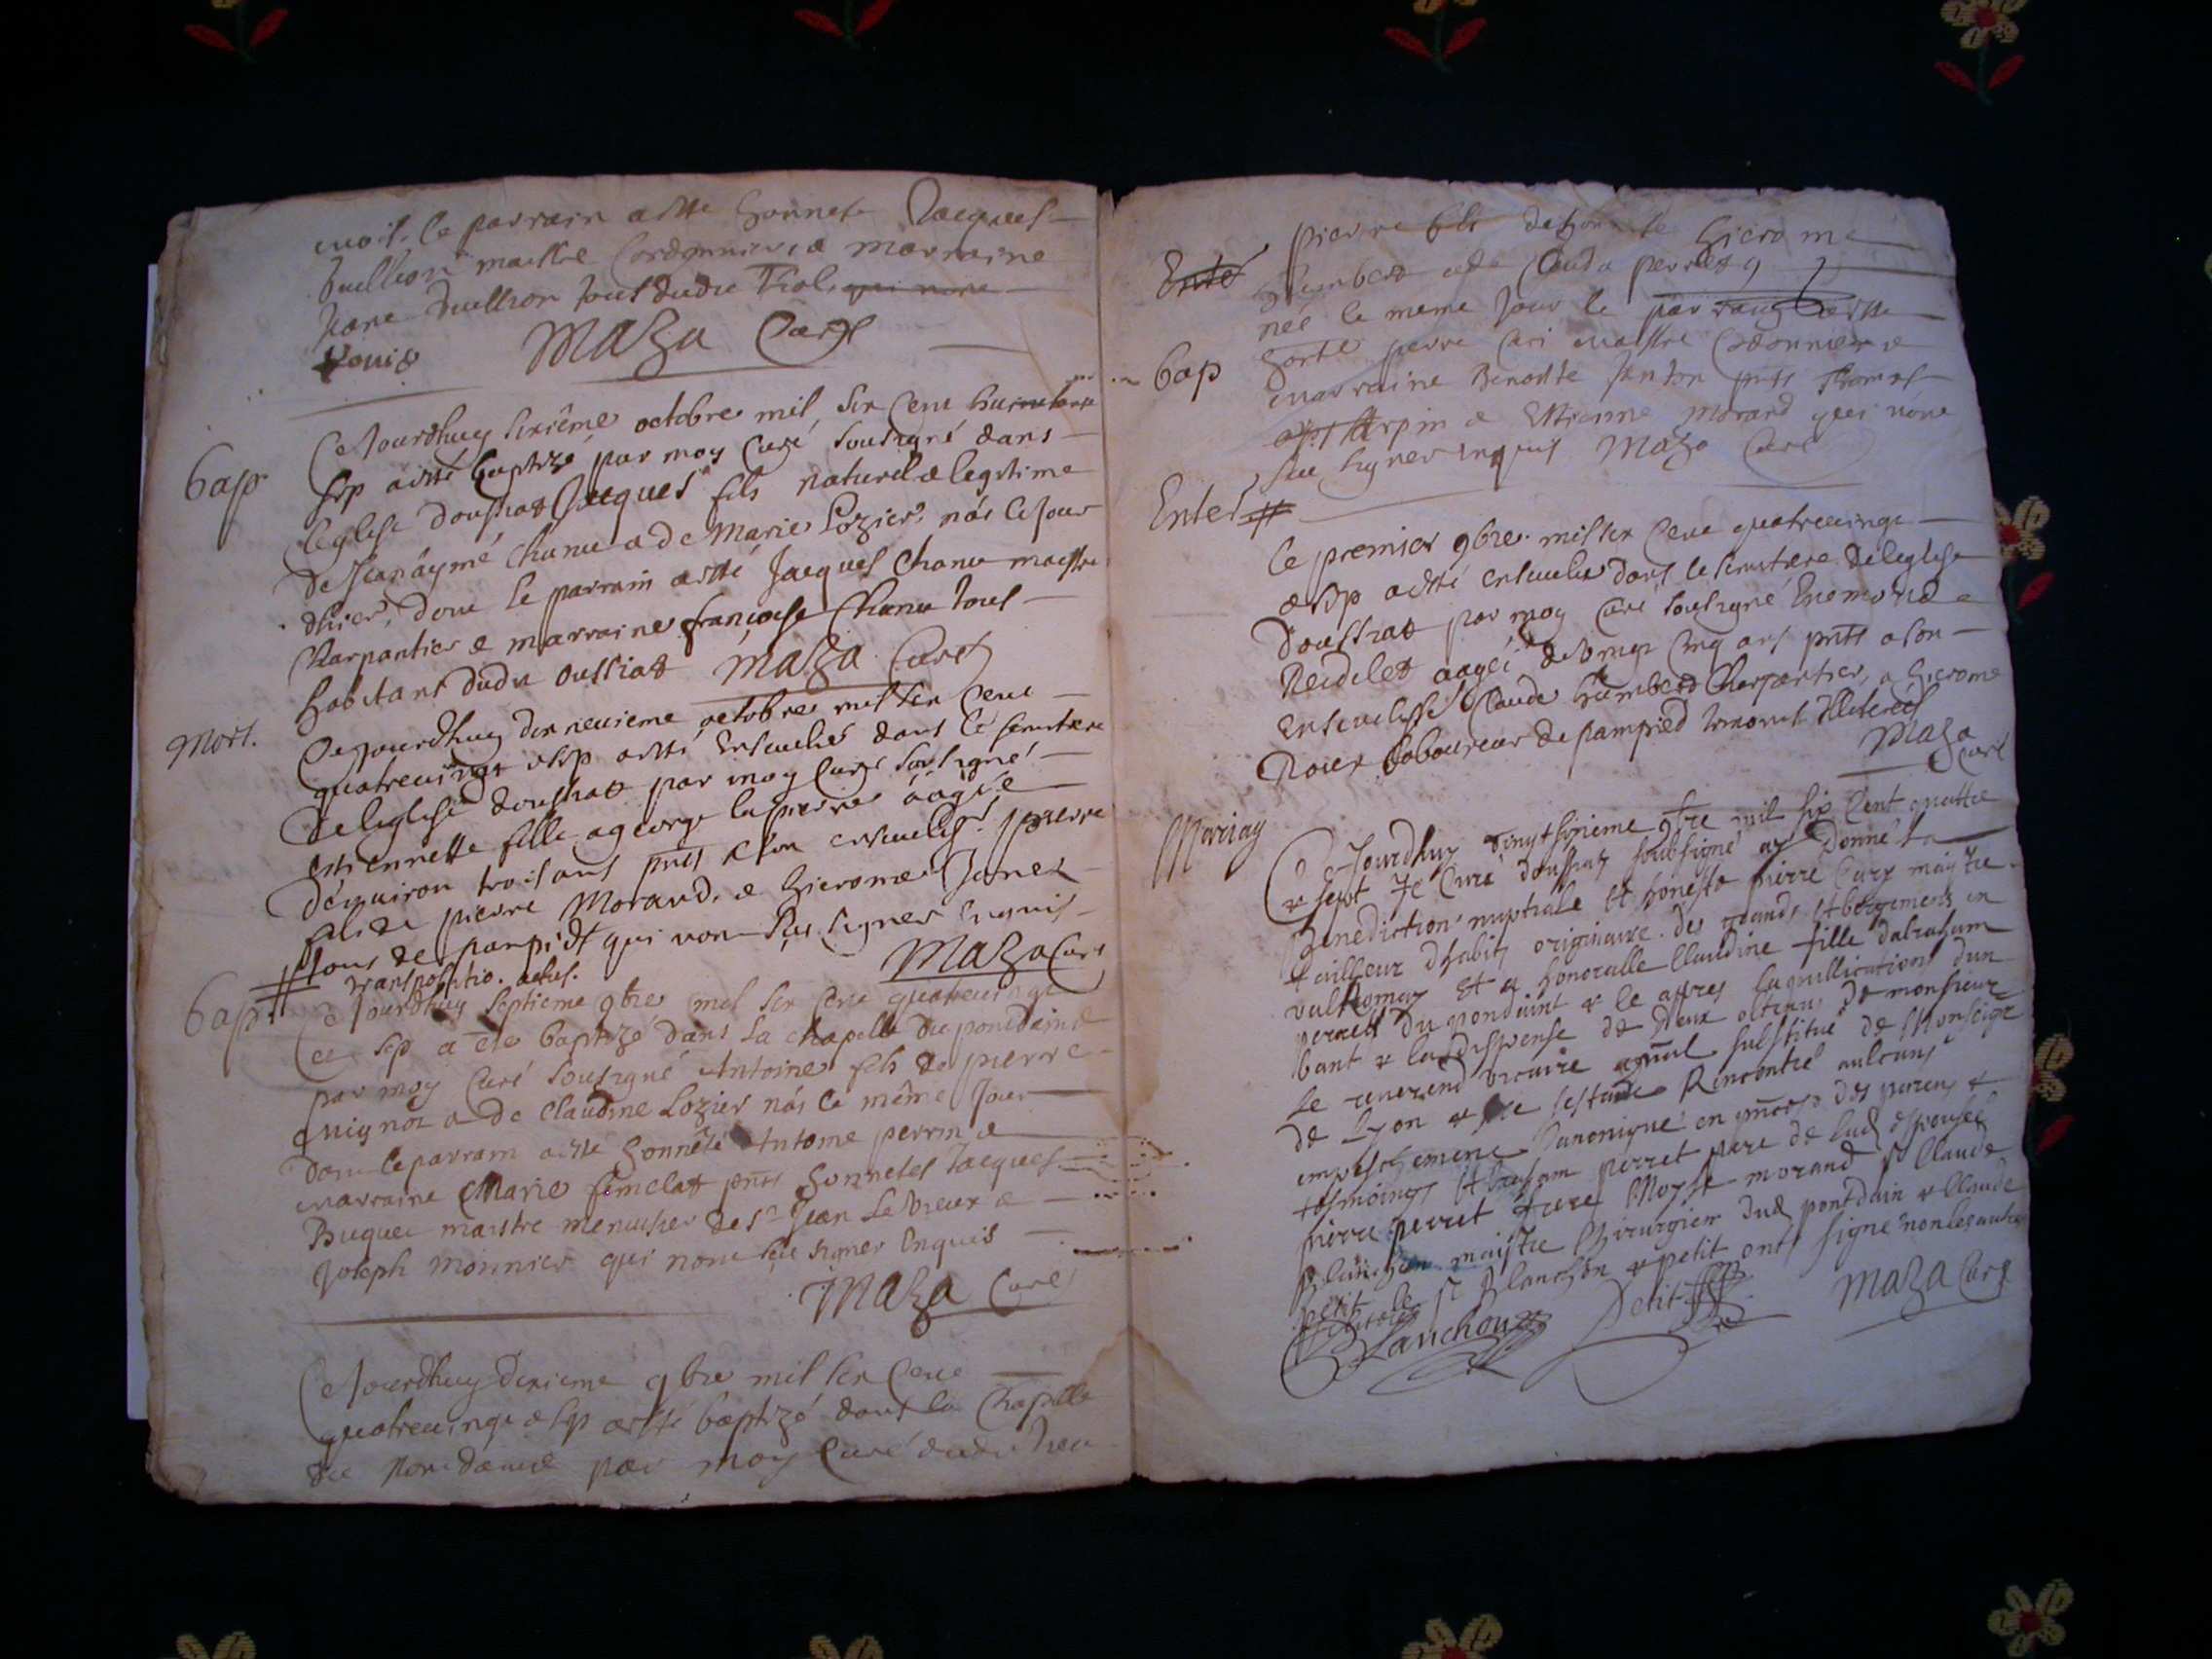 mois, le parrain a esté honneste Jacques
maistre Cordonnier, & marraine
Jeane tous dudit qui nont
Maza Curé
bap
Cejourdhuy sixième octobre mil six cent
sep a esté baptizé par moy Curé sousigné dans
leglise doussiat Jacques fils naturel & legitime
de Jean aymé Chanu & de Marie Lozier, nás le jour
dhier, dont le parrain a esté Jacques Chanu maistre
Charpantier & marraine françoise Chanu tous
habitans dudit oussiat Maza Curé
Mort.
Cejourdhuy dixneuvieme octobre mil six cent
quatrevingt & sep a esté ensevelie dans le semitiere
de leglise doussiat par moy Curé soussigné
estiennette fille a george lapierre aagée
denviron trois ans pnts a son ensevelisst. pierre
fils de pierre Morand, & hierome Janet
tous de pampidt qui nont sçu signer enquis
Maza Curé
# transpositio. actus.
bap. #
Cejourdhuy septieme 9bre mil six cent quatrevingt
et sep a été baptizé dans la chapelle du pontdaind
par moy Curé sousigné Antoine fils de pierre
quignot & de Claudine Lozier nás le même jour
dont le parrain a esté honneste Antome perrin &
marraine Marie femelat pnts honnetes Jacques
Buquet maistre menusier de st Jean Le Vieux &
Joseph Monnier qui nont sçu signer enquis
Maza Curé
Cejourdhuy dixieme 9bre mil six cent
quatrevingt & sep a esté baptizé dans la Chapelle
du pontdaind par moy Curé dudit lieu
pierre fils de honneste hierome
Enter
humbert & de Clauda perret
nés le meme jour le parraing a esté
bap
pierre maistre Cordonnier &
marraine Benoitte pnts Thomas
Arpin & Estienne Morand qui nont
sçu signer enquis Maza Curé
Enter #
Le premier 9bre. mil six cent quatrevingt
& sep a esté ensevelie dans le semitiere de leglise
doussiat par moy Curé sousigné Enemonde
Reidelet aagée de vingt cinq ans pnts a son
ensevelisst. Claude humbert Charpantier, & hierome
Roux laboureur de pampied illiterés
Maza
Curé
Mariag
Cejourdhuy vingt sixieme 9bre mil six Cent quattre
& sept Je Curé doussiat soubsigné ay donné la
Benediction nuptiale a honeste pierre Cury maistre
tailleur dhabits originaire des grands abergements en
valromay et a honorable Claudine fille dabraham
perret du pondaint & ce apres la publication dun
bant & la dispense de deux obtenu de monsieur
le reverend vicaire gnal substitué de Monseigr
de Lyon & ne sestant Rencontré aulcuns
empeschement Canonique en pnce des parens &
tesmoings abraham perret pere de lad espousee
pierre perret frere Moyse morand sr Claude
Blanchon maistre Chirurgien dud pontdain & Claude
petit le sr Blanchon & petit ont signe non les autres
Blanchon Petit Maza Curé